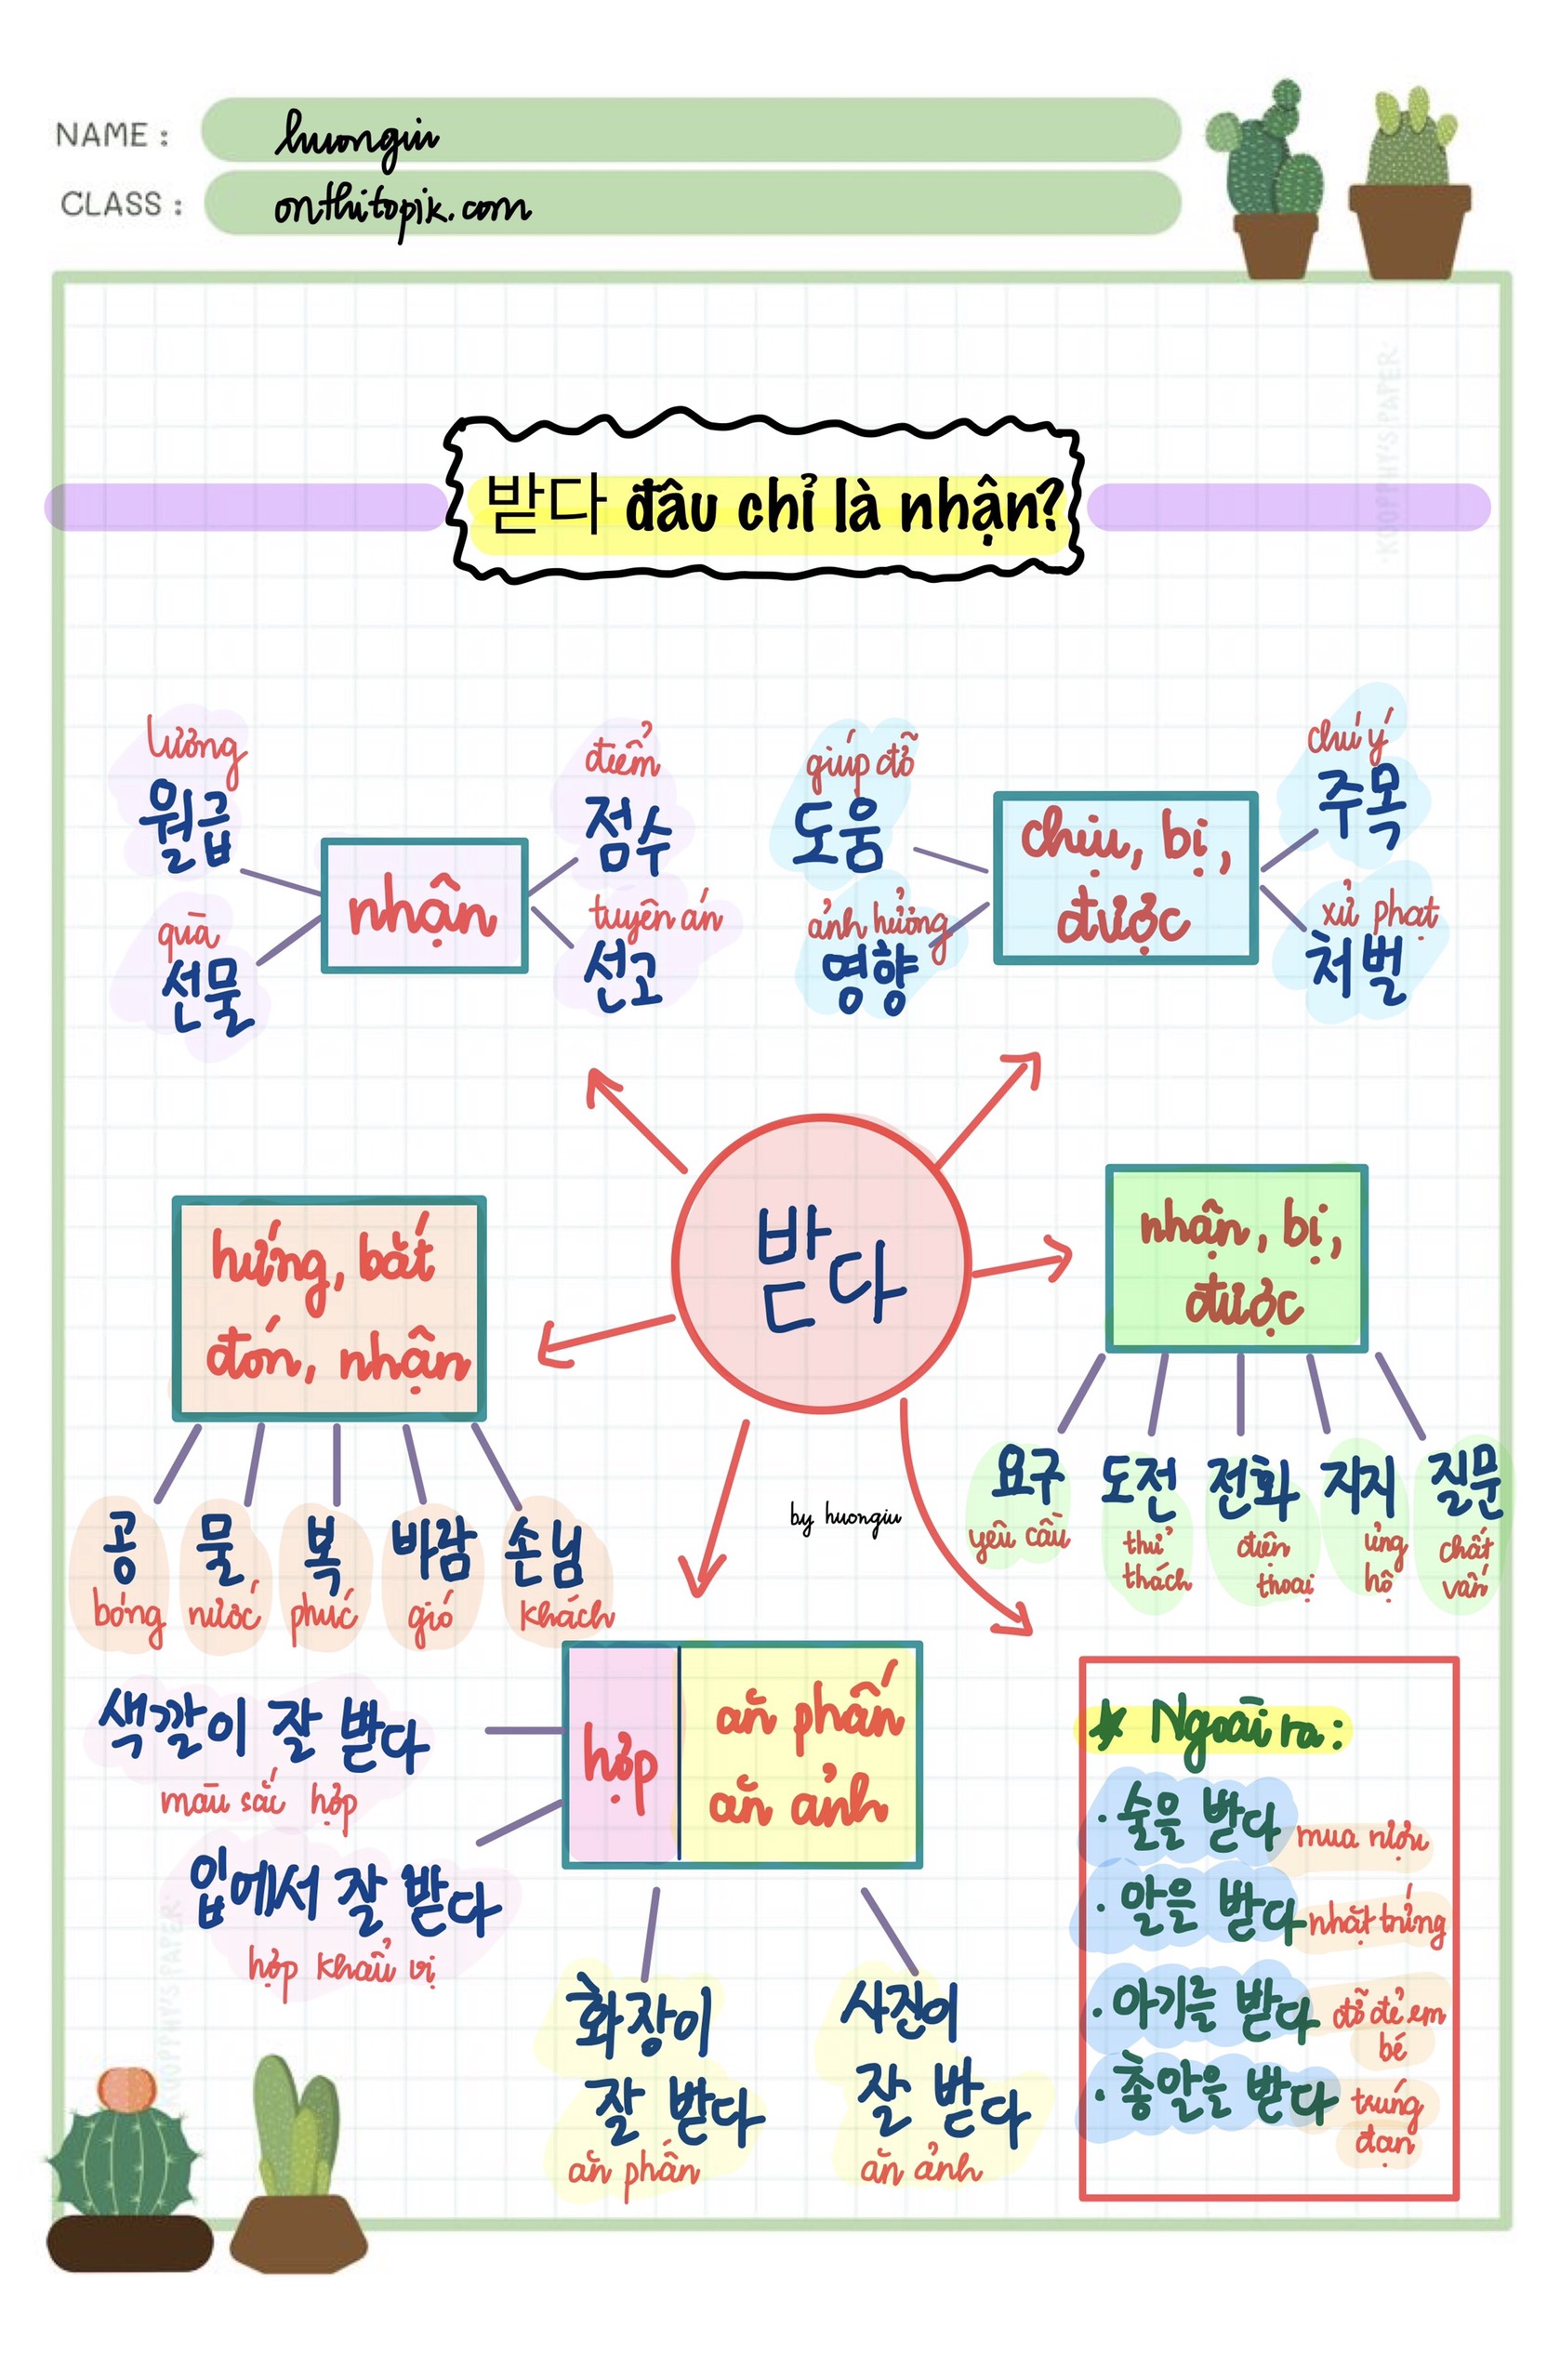 NAME :
huongiu
CLASS :
onthitopik.com
KOOPPHY'S PAPER
받다 đâu chỉ là nhận?
lương
월급
quà
선물
nhận
điểm
점수
tuyên án
선고
giúp đỡ
도움
ảnh hưởng
영향
chịu, bị,
được
chú ý
주목
xử phạt
처벌
받다
hứng, bắt
đón, nhận
공
bóng
물
nước
복
phúc
바람
gió
손님
khách
nhận, bị,
được
요구
yêu cầu
도전
thử
thách
전화
điện
thoại
지지
ủng
hộ
질문
chất
vấn
by huongiu
hợp
ăn phấn
ăn ảnh
색깔이 잘 받다
màu sắc hợp
입에서 잘 받다
hợp khẩu vị
화장이
잘 받다
ăn phấn
사진이
잘 받다
ăn ảnh
★ Ngoài ra:
· 술을 받다 mua rượu
· 알을 받다 nhặt trứng
· 아기를 받다 đỡ đẻ em
bé
· 총알을 받다 trúng
đạn
KOOPPHY'S PAPER